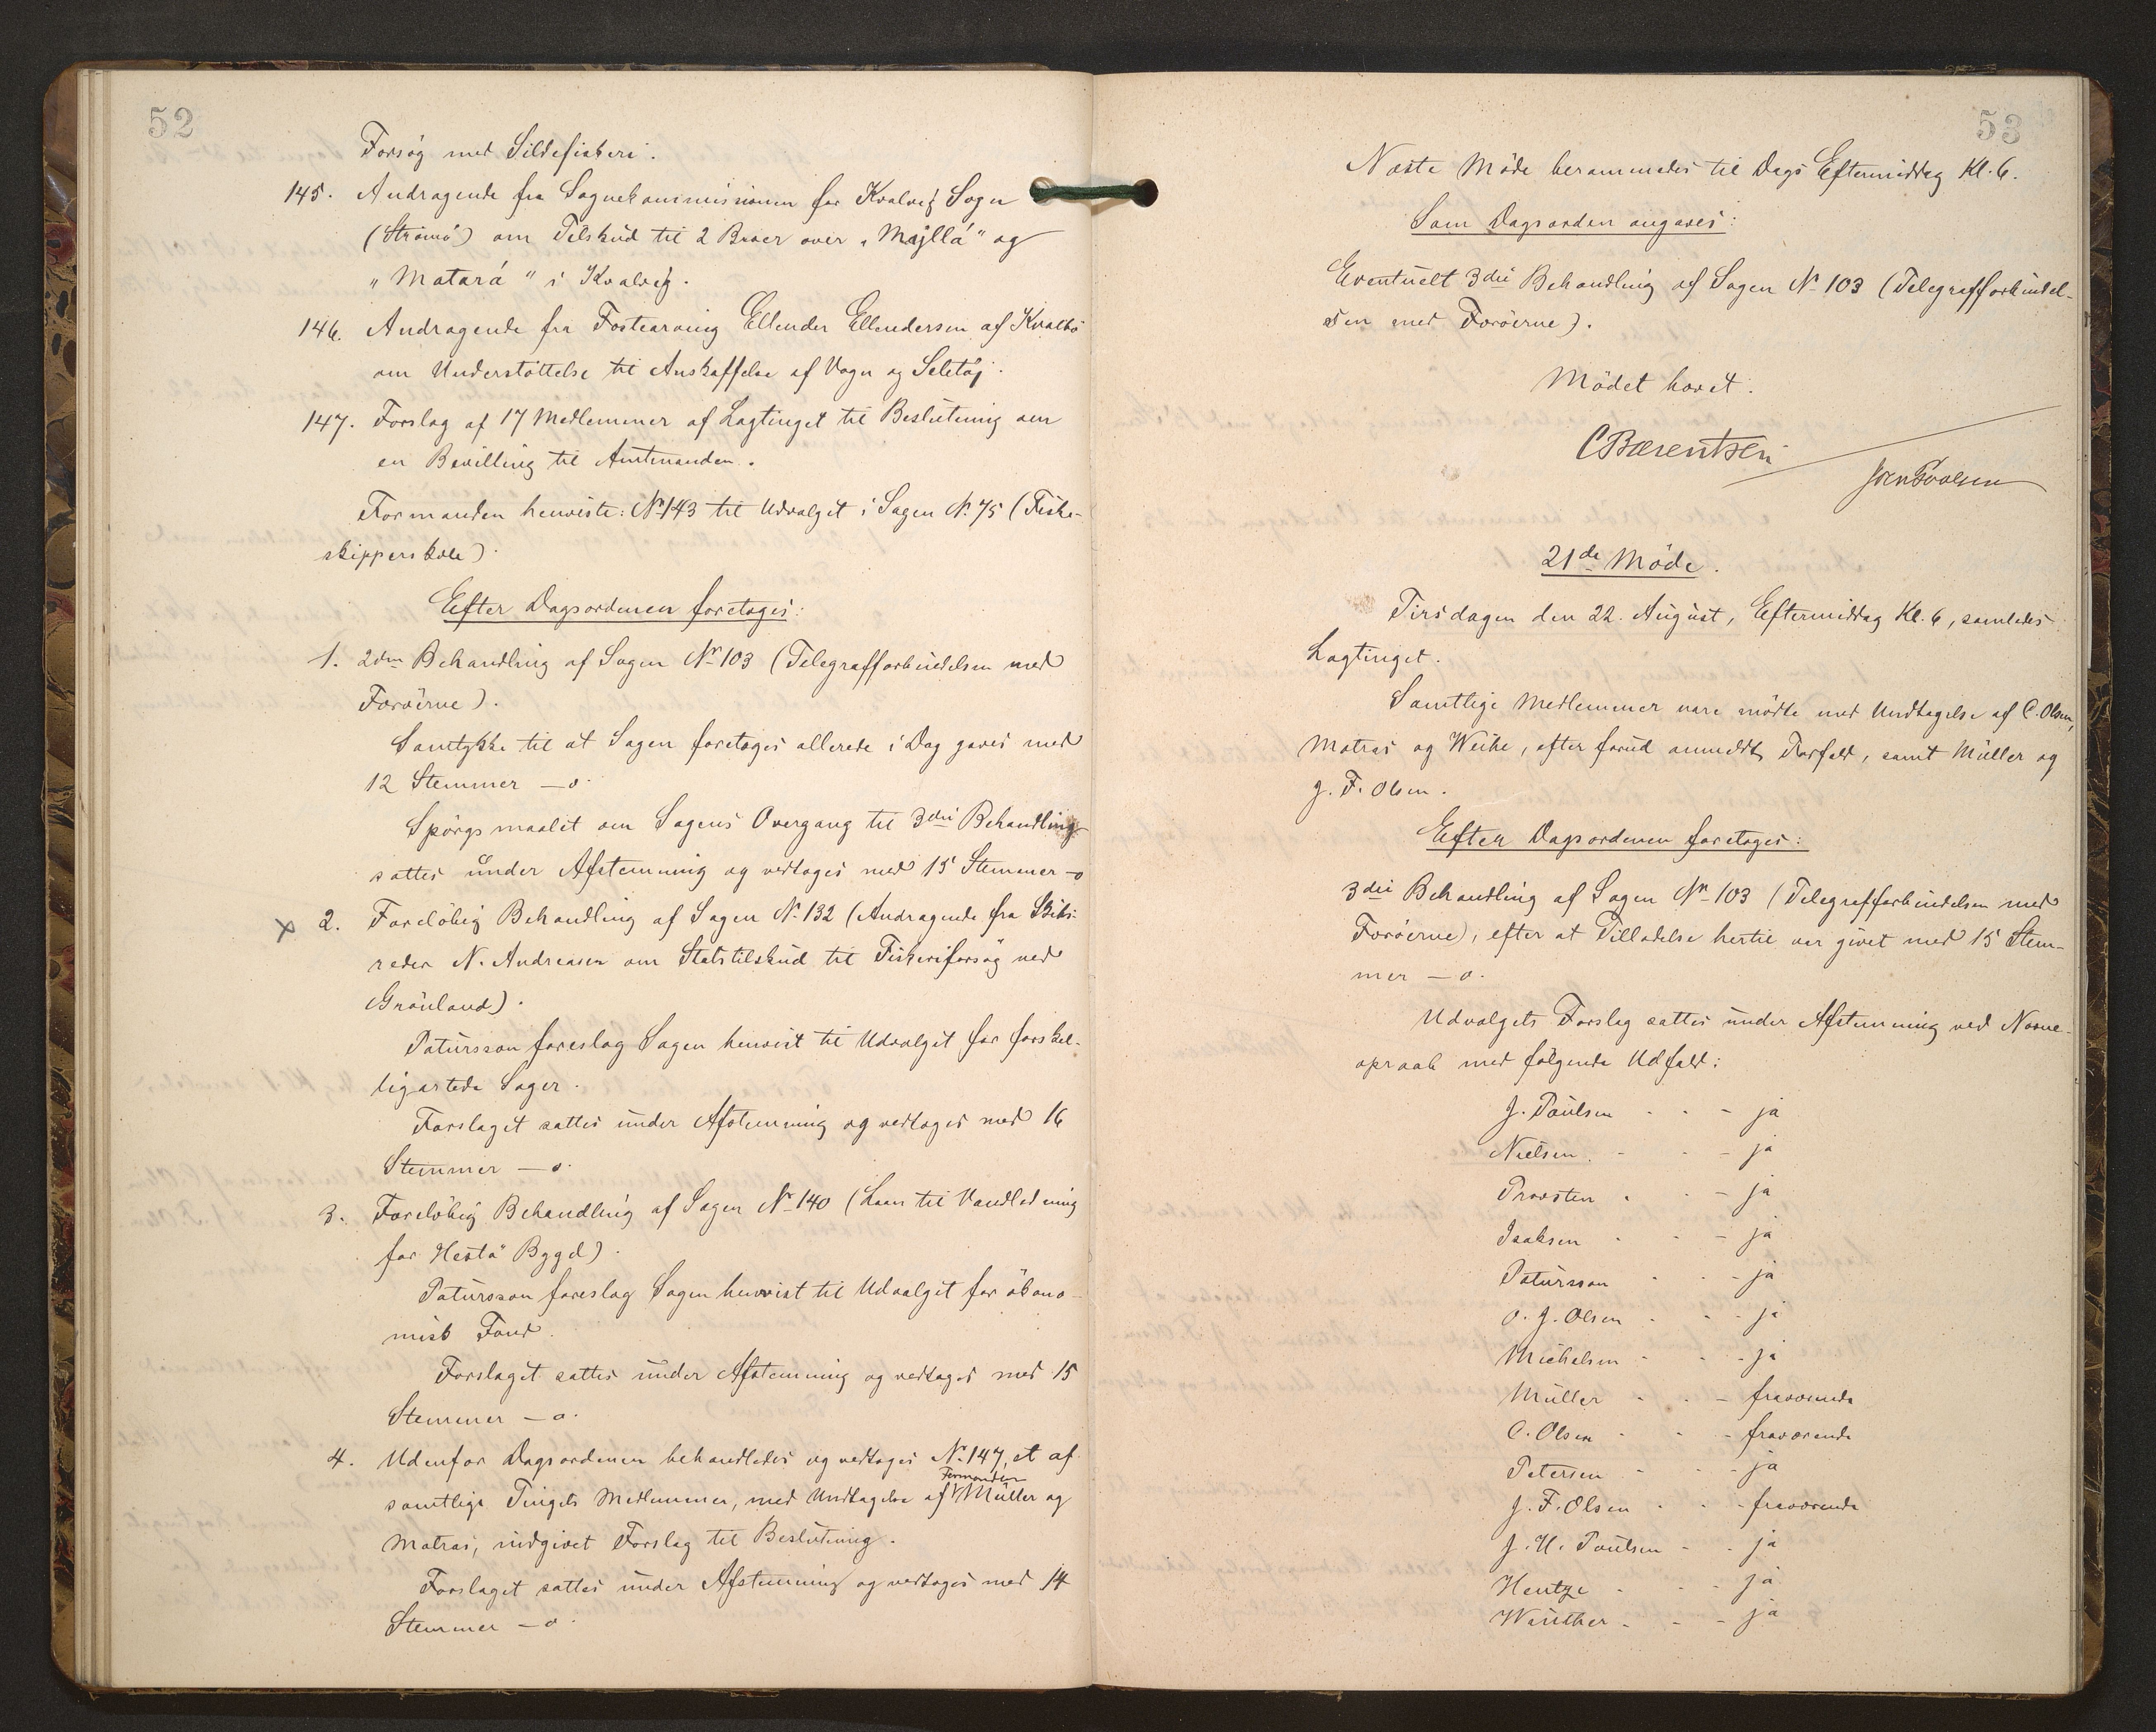 52
Forsøg med Sildefiskeri.
145. Andragende fra Sognekommissionen for Kvalvig Sogn
(Strømø) om Tilskud til 2 Broer over „Mjllá" og
„Matará" i Kvalvig.
146. Andragende fra Ellender Ellendersen af Kvalbø
om Understøttelse til Anskaffelse af Vogn og Seletøj.
147. Forslag af 17 Medlemmer af Lagtinget til Beslutning om
en Bevilling til Amtmanden.
Formanden henviste: No 143 til Udvalget i Sagen No 75 (Fiske-
skipperskole).
Efter Dagsordenen foretoges:
1. 2den Behandling af Sagen Nr 103 (Telegrafforbindelsen med
Færøerne).
Samtykke til at Sagen foretoges allerede i Dag gaves med
12 Stemmer — o.
Spørgsmaalet om Sagens Overgang til 3die Behandling
sattes under Afstemning og vedtoges med 15 Stemmer — o
x 2. Foreløbig Behandling af Sagen No 132 (Andragende fra Skibs-
reder N. Andreasen om Statstilskud til Fiskeriforsøg ved
Grønland).
Patursson foreslog Sagen henvist til Udvalget for forskel-
ligartede Sager.
Forslaget sattes under Afstemning og vedtoges med 16
Stemmer — o.
3. Foreløbig Behandling af Sagen Nr 140 (Laan til Vandledning
for Hestø Bygd).
Patursson foreslog Sagen henvist til Udvalget for økono-
misk Fond.
Forslaget sattes under Afstemning og vedtoges med 15
Stemmer — o.
4. Udenfor Dagsordenen behandledes og vedtoges No 147, et af
Formanden
samtlige Tingets Medlemmer, med Undtagelse af Müller og
Matras, indgivet Forslag til Beslutning.
Forslaget sattes under Afstemning og vedtoges med 14
Stemmer — o.
53
Næste Møde berammedes til Dags Eftermiddag Kl. 6.
Som Dagsorden angaves:
Eventuelt 3die Behandling af Sagen No 103 (Telegrafforbindel-
sen med Færøerne).
Mødet hævet.
CBærentsen
21de Møde.
Tirsdagen den 22. August, Eftermiddag Kl. 6, samledes
Lagtinget.
Samtlige Medlemmer vare mødte med Undtagelse af C. Olsen,
Matras og Weihe, efter forud anmeldt Forfald, samt Müller og
J. F. Olsen.
Efter Dagsordenen foretoges:
3die Behandling af Sagen Nr 103 (Telegrafforbindelsen med
Færøerne), efter at Tilladelse hertil var givet med 15 Stem-
mer — o.
Udvalgets Forslag sattes under Afstemning ved Navne-
opraab med følgende Udfald:
J. Poulsen - - - ja
Nielsen - - - ja
Provsten - - - ja
Isaksen - - - ja
Patursson - - - ja
O. J. Olsen - - - ja
Michelsen - - - ja
Müller - - - fraværende
C. Olsen - - - fraværende
Petersen - - - ja
J. F. Olsen - - - fraværende
J. H. Poulsen - - ja
Hentze - - - ja
Winther - - - ja